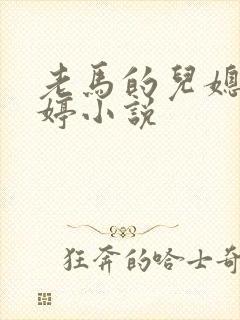 老馬的兒媳
婷小說
狂奔的哈士奇